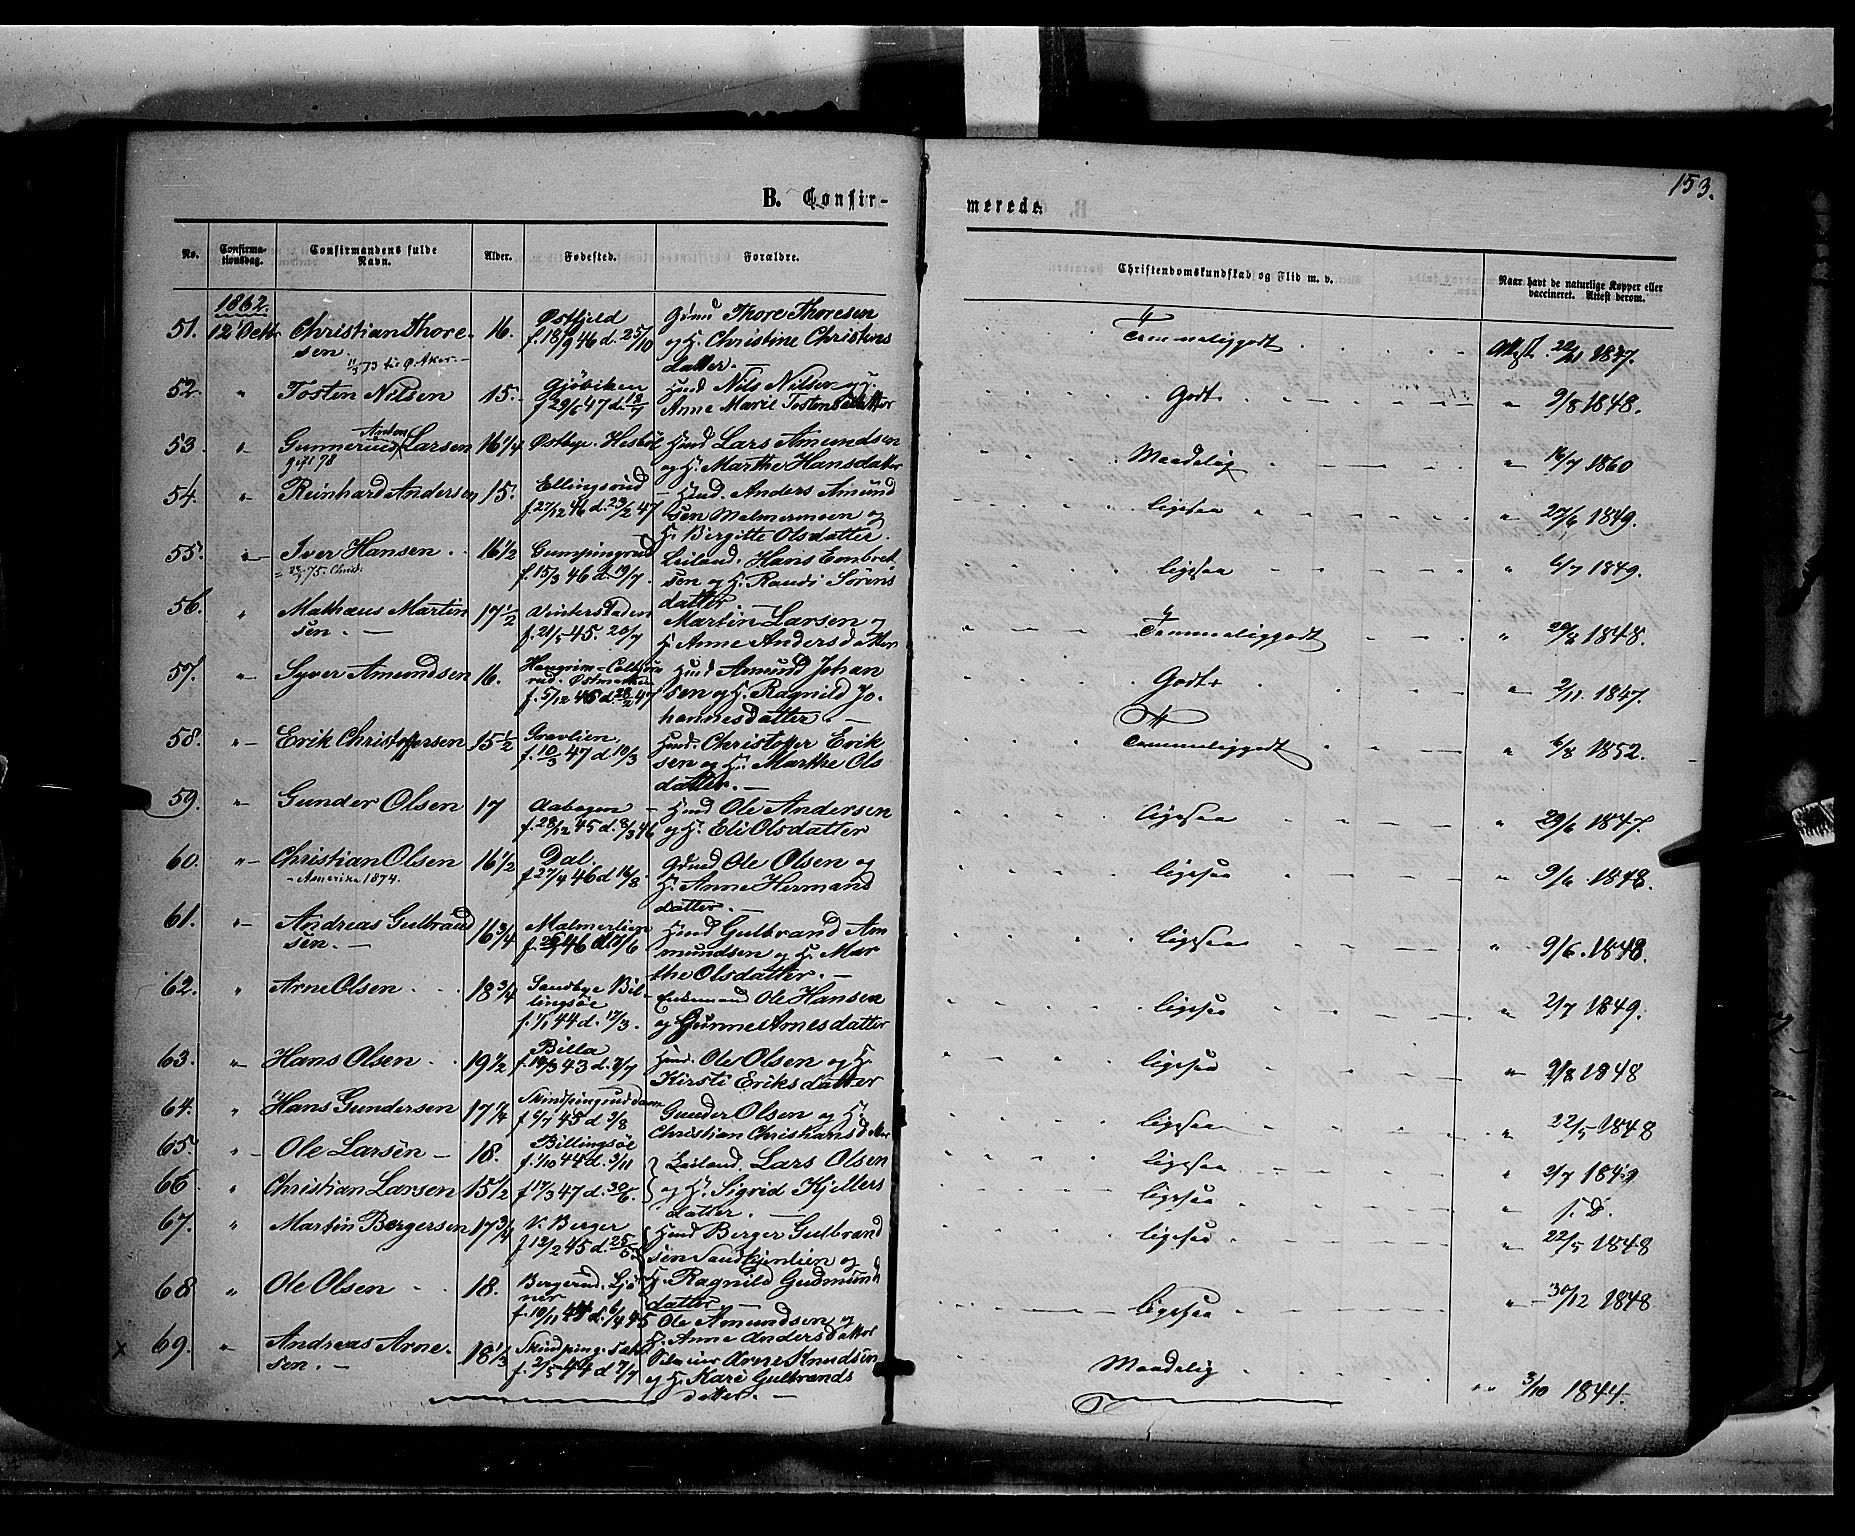 153.
B. Confir-
merede.
No.
Confirma-
tionsdag.
Confirmandens fulde
Navn.
Alder.
Fødested.
Forældre.
Christendomskundskab og Flid m. v.
Naar havt de naturlige Kopper eller
vaccineret. Attest derom.
1862.
51. 12 Octb. Christian Thore- 16. Østhjeld Thore Thoresen Temmeliggodt Attest 1847.
sen. f. 18/9 46 d. 25/10 og H. Christine Christens
11/3 73 til Ø. Aker. datter.
52. " Tosten Nilsen 15. Gjøviken Huusd Nils Nilsen og H. Godt " 9/8 1848.
Anne Marie Tostensdatter
53 " Anton
Gunnerius Larsen 16 1/4 Østbye Hesbøl Huusd Lars Amundsen Maadelig " 16/7 1860
gift 78 og H. Marthe Hansdatter
54. " Reinhard Andersen 15. Ellingsrud Huusd. Anders Amund ligesaa " 27/6 1849.
f. 27/12 46 d. 23/2 47 sen Malmermoen og
H. Birgitte Olsdatter.
55. " Iver Hansen 16 1/2 Gumpingrud Leiland. Hans Embret ligesaa " 6/7 1849.
75. Christ. f. 15/3 46 d. 19/7 sen og H. Randi Sørens
datter
56. " Mathæus Martin 17 1/2 Vinterstaden Martin Larsen og Temmeliggodt " 29/8 1848.
sen. f. 21/5 45. 20/7 H. Anne Andersdatter
57. " Syver Amundsen 16. Huusd Amund Johan Godt " 2/11 1847.
f. 5/12 46 d. 28/2 47 sen og H. Ragnild Jo-
hannesdatter
58. " Erik Christoffersen 15 1/2 Gravlien Huusd. Christoffer Erik Temmeliggodt " 6/8 1852.
f. 10/3 47 d 19/3 sen og H. Marthe Ols
datter.
59. " Gunder Olsen 17 Aabogen Huusd Ole Andersen ligesaa " 29/6 1847.
f. 28/12 45 d. 8/3 46 og H. Eli Olsdatter
60. " Christian Olsen 16 1/2 Dal. Ole Olsen og ligesaa 9/6 1848.
Amerika 1874. f. 27/4 46 d 16/8 H. Anne Hermand
datter.
61. " Andreas Gulbrand 16 3/4 Malmerlien Huusd Gulbrand Am ligesaa " 9/6. 1848.
sen. 46 d. 7/6 mundsen og H. Mar
the Olsdatter.
62. " Arne Olsen 18 3/4 Sandbye Bil- Enkemand Ole Hansen ligesaa " 2/7 1849.
lingsøe og Gunne Arnesdatter
f. 1/1 44 d. 17/3.
63. " Hans Olsen 19 1/2 Billa Huusd. Ole Olsen og H. ligesaa " 9/8 1848
f. 19/3 43 d. 2/7 Kirsti Eriksdatter
64. " Hans Gundersen 17 1/4 Skindpingruddam Gunder Olsen og H. ligesaa " 22/5 1848
f 6/7 45 d 3/8 Christian Christiansdatter
65. " Ole Larsen 18. Billingsøe Leiland. Lars Olsen ligesaa " 2/7 1849
f. 1/10 44 d. 3/11
66 " Christian Larsen 15 1/2 f 17/3 47 d. 30/5. og H. Sigrid Kjellers ligesaa " f. D.
datter.
67. " Martin Bergersen 17 3/4 V. Berger Huusd Berger Gulbrand ligesaa " 22/5 1848
f 12/2 45 d. 25/5 sen Sandkjernlien og
H. Ragnild Gudmund
datter
68 " Ole Olsen 18. Bergerud. Sjø Ole Amundsen og ligesaa " 30/12 1848
ner H. Anne Andersdatter
f. 10/11 44 d. 6/4 45
x 69. " Andreas Arne- 18 1/3 Arne Knudsen Maadelig " 3/10 1844.
sen. f. 2/5 44 d 7/7 og H. Kari Gulbrands
datter.